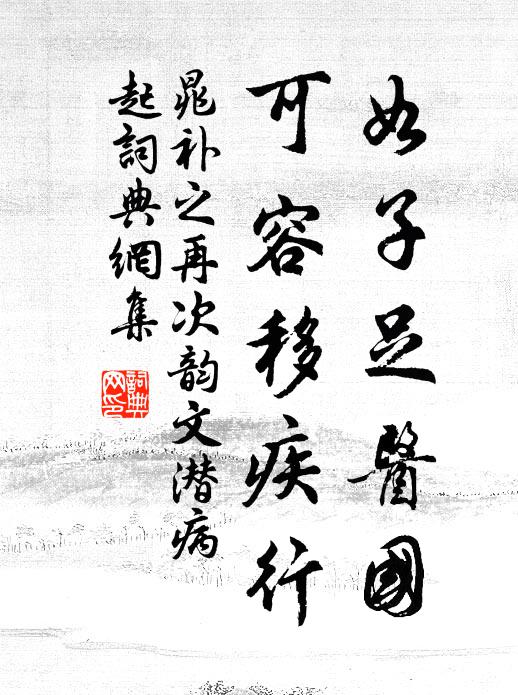 如子足醫國
可容移疾行
晁补之再次韵文潜病
起詞典網集
詞典
网印